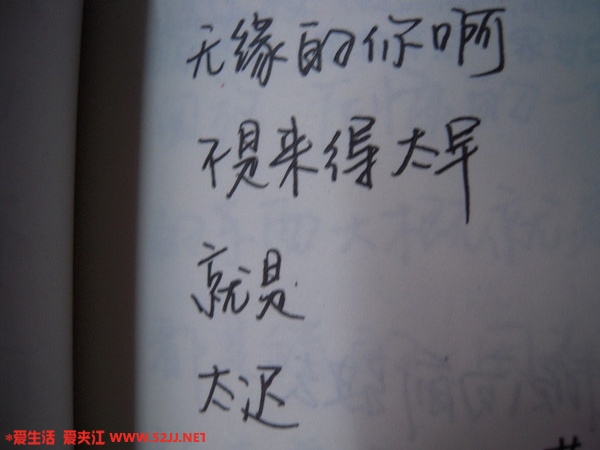 无缘的你啊
不是来得太早
就是
太迟
*爱生活 爱夹江 WWW.52JJ.NET